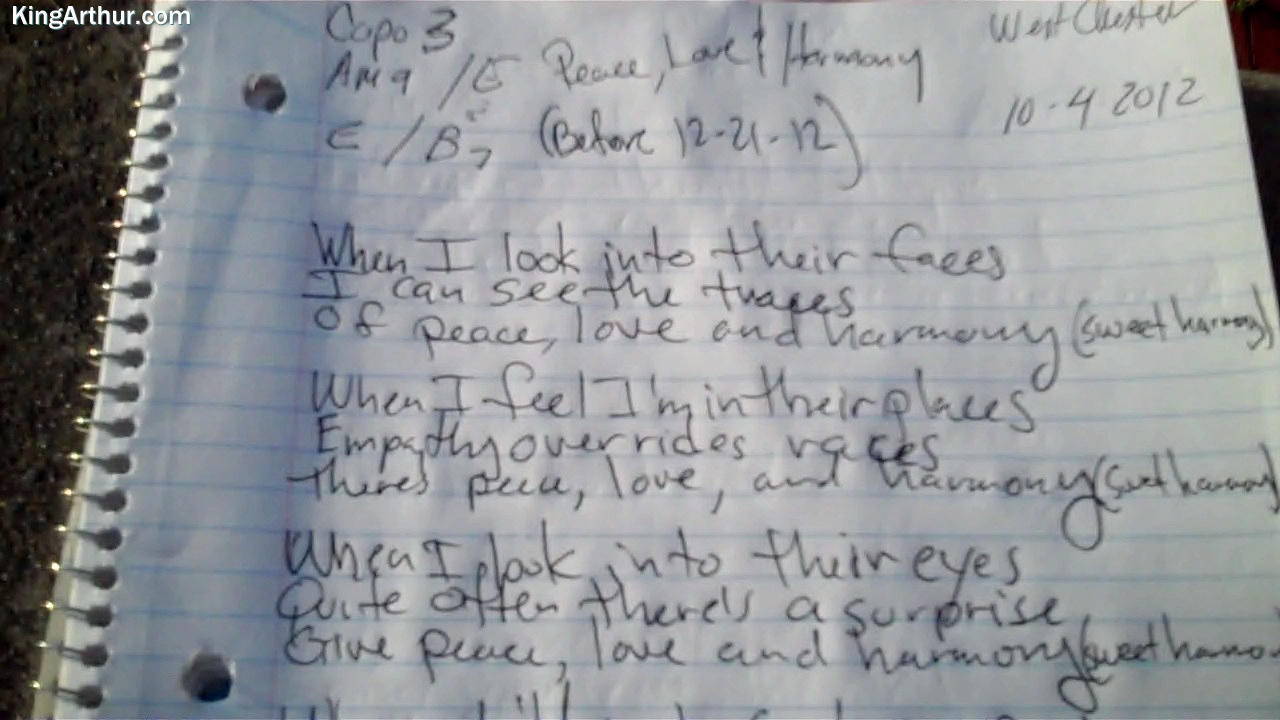 KingArthur.com
Capo 3
West Chester
Am9 /E Peace, Love & Harmony
10-4 2012
E / B7 (Before 12-21-12)
When I look into their faces
I can see the traces
Of peace, love and harmony (sweet harmony)
When I feel I'm in their places
Empathy overrides races
There's peace, love, and harmony (sweet harmony)
When I look into their eyes
Quite often there's a surprise
Give peace, love and harmony (sweet harmo